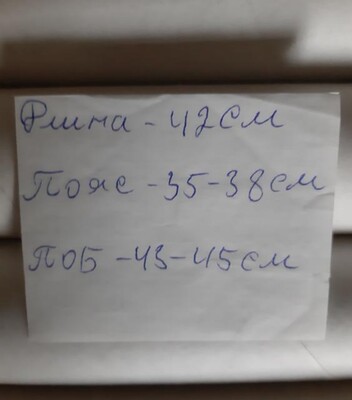 Длина - 42 см
Пояс - 35-38 см
ПОБ - 43-45 см